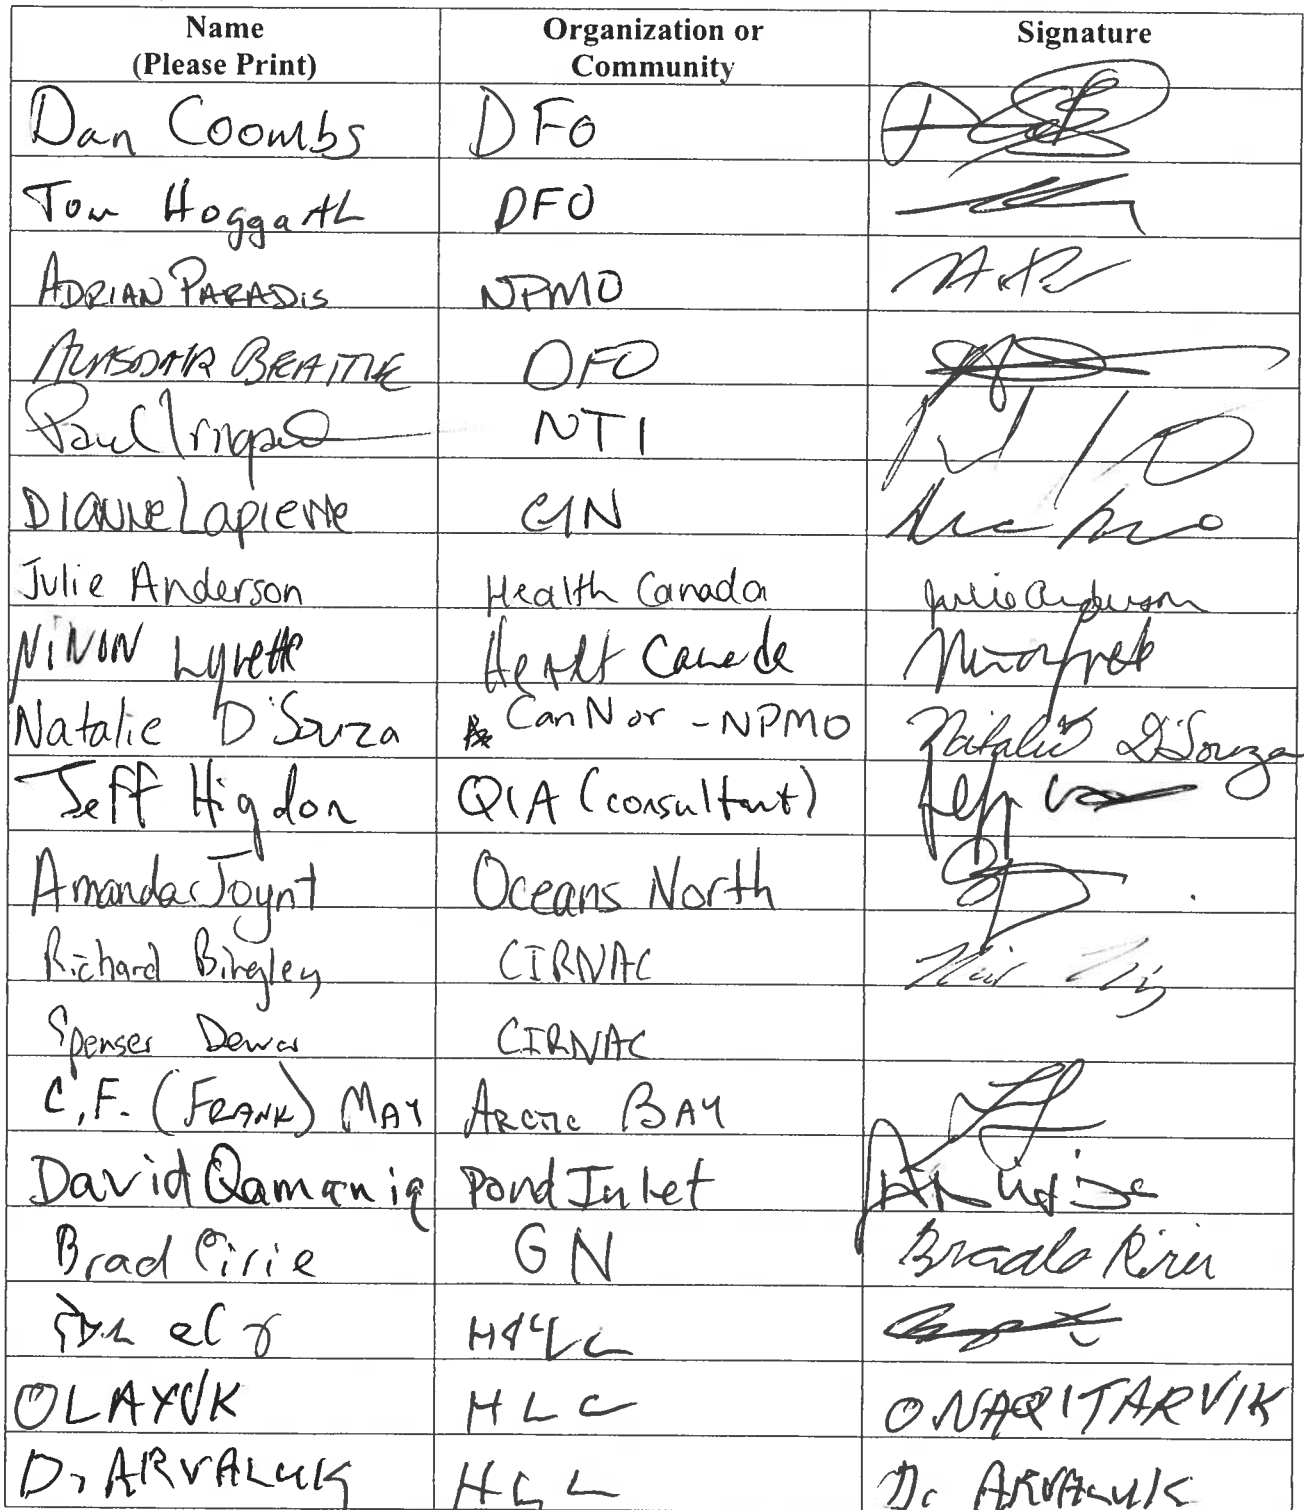 Name (Please Print) Organization or Community Signature
Dan Coombs DFO
Tom Hoggarth DFO
ADRIAN PARADIS NPMO
ALASDAIR BEATTIE DFO
Paul NTI
DIANNE Lapierre GN
Julie Anderson Health Canada Julie Anderson
NiNON Lyrette Healt Canada
Natalie D'Souza CanNor - NPMO Natalie D'Souza
Jeff Higdon QIA (consultant)
Amanda Joynt Oceans North
Richard Bingley CIRNAC
Spenser Dewar CIRNAC
C.F. (FRANK) MAY ARCTIC BAY
David Qamaniq Pond Inlet
Brad Pirie GN
OLAYUK HLC O NAQITARVIK
D. ARVALUK D. ARVALUK